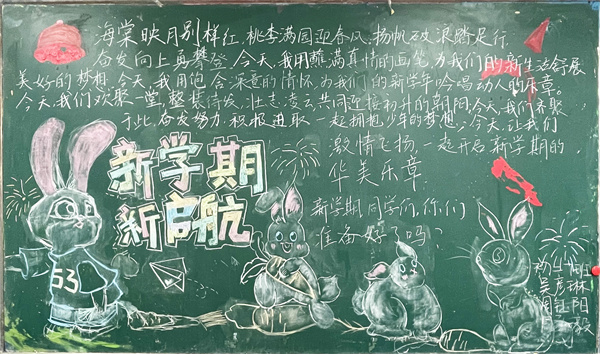 海棠映月别样红,桃李满园迎春风,扬帆破浪踏足行,
奋发向上再攀登。今天,我用蘸满真情的画笔,为我们的新生活舒展
美好的梦想,今天,我用饱含深意的情怀,为我们的新学年吟唱动人的乐章。
今天,我们欢聚一堂,整装待发,壮志凌云共同迎接初升的朝阳,今天,我们齐聚
于此,奋发努力,积极进取,一起拥抱少年的梦想,今天,让我们
激情飞扬,一起开启新学期的,
华美乐章
新学期
新启航
新学期同学们,你们
准备好了吗?
53